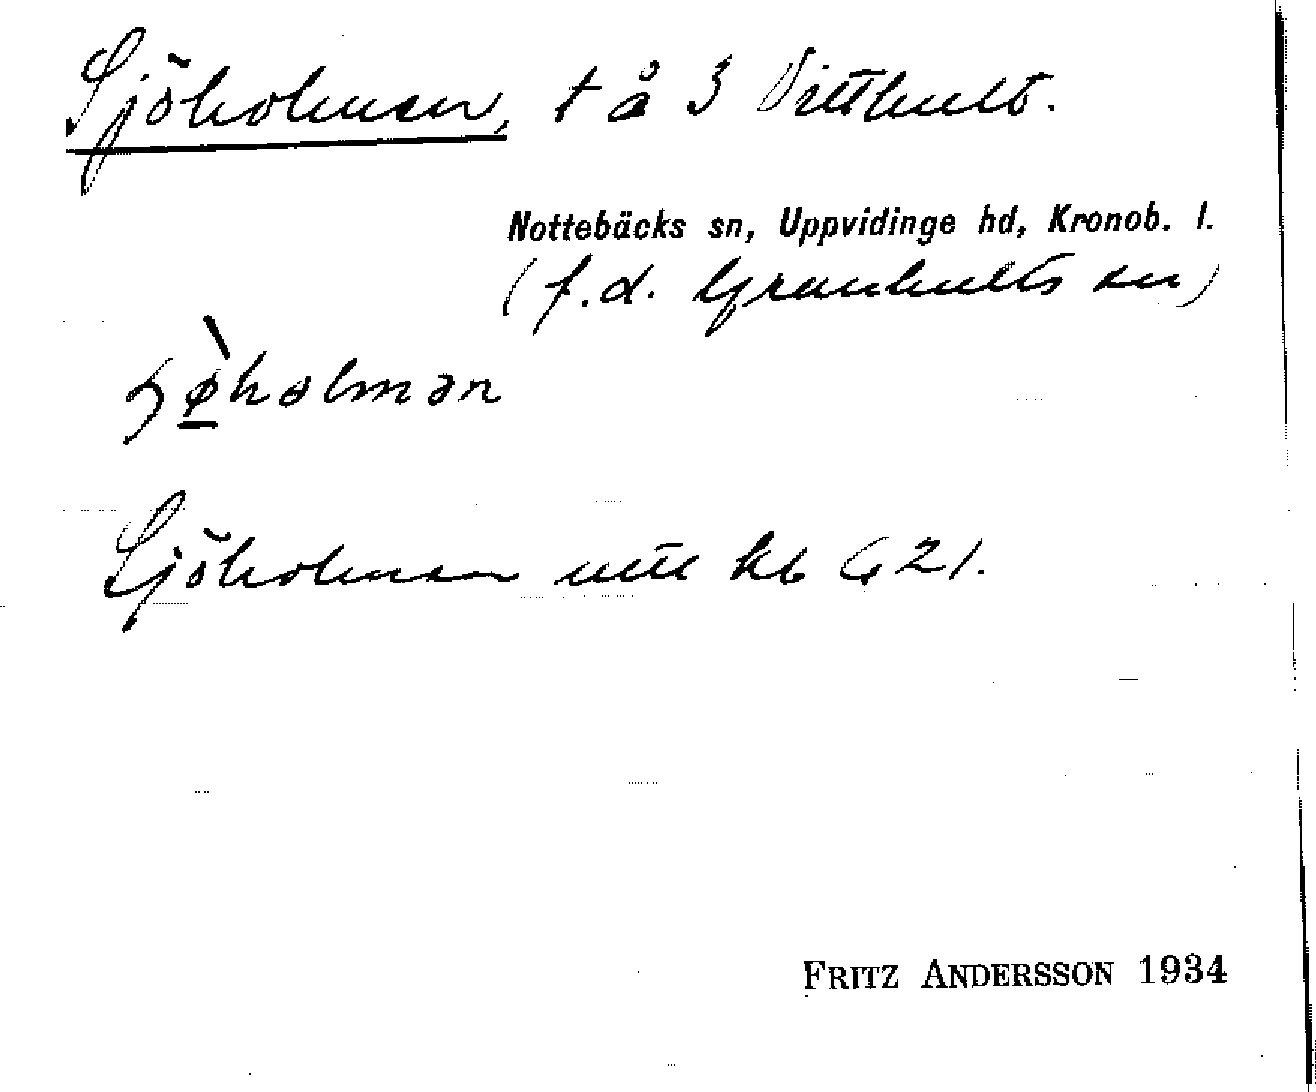 Sjöholmen, t å 3 Vitthult.
Nottebäcks sn, Uppvidinge hd, Kronob. l.
(f.d. Granhults sn)
Sjöholmen utt kb G 21.
FRITZ ANDERSSON 1934